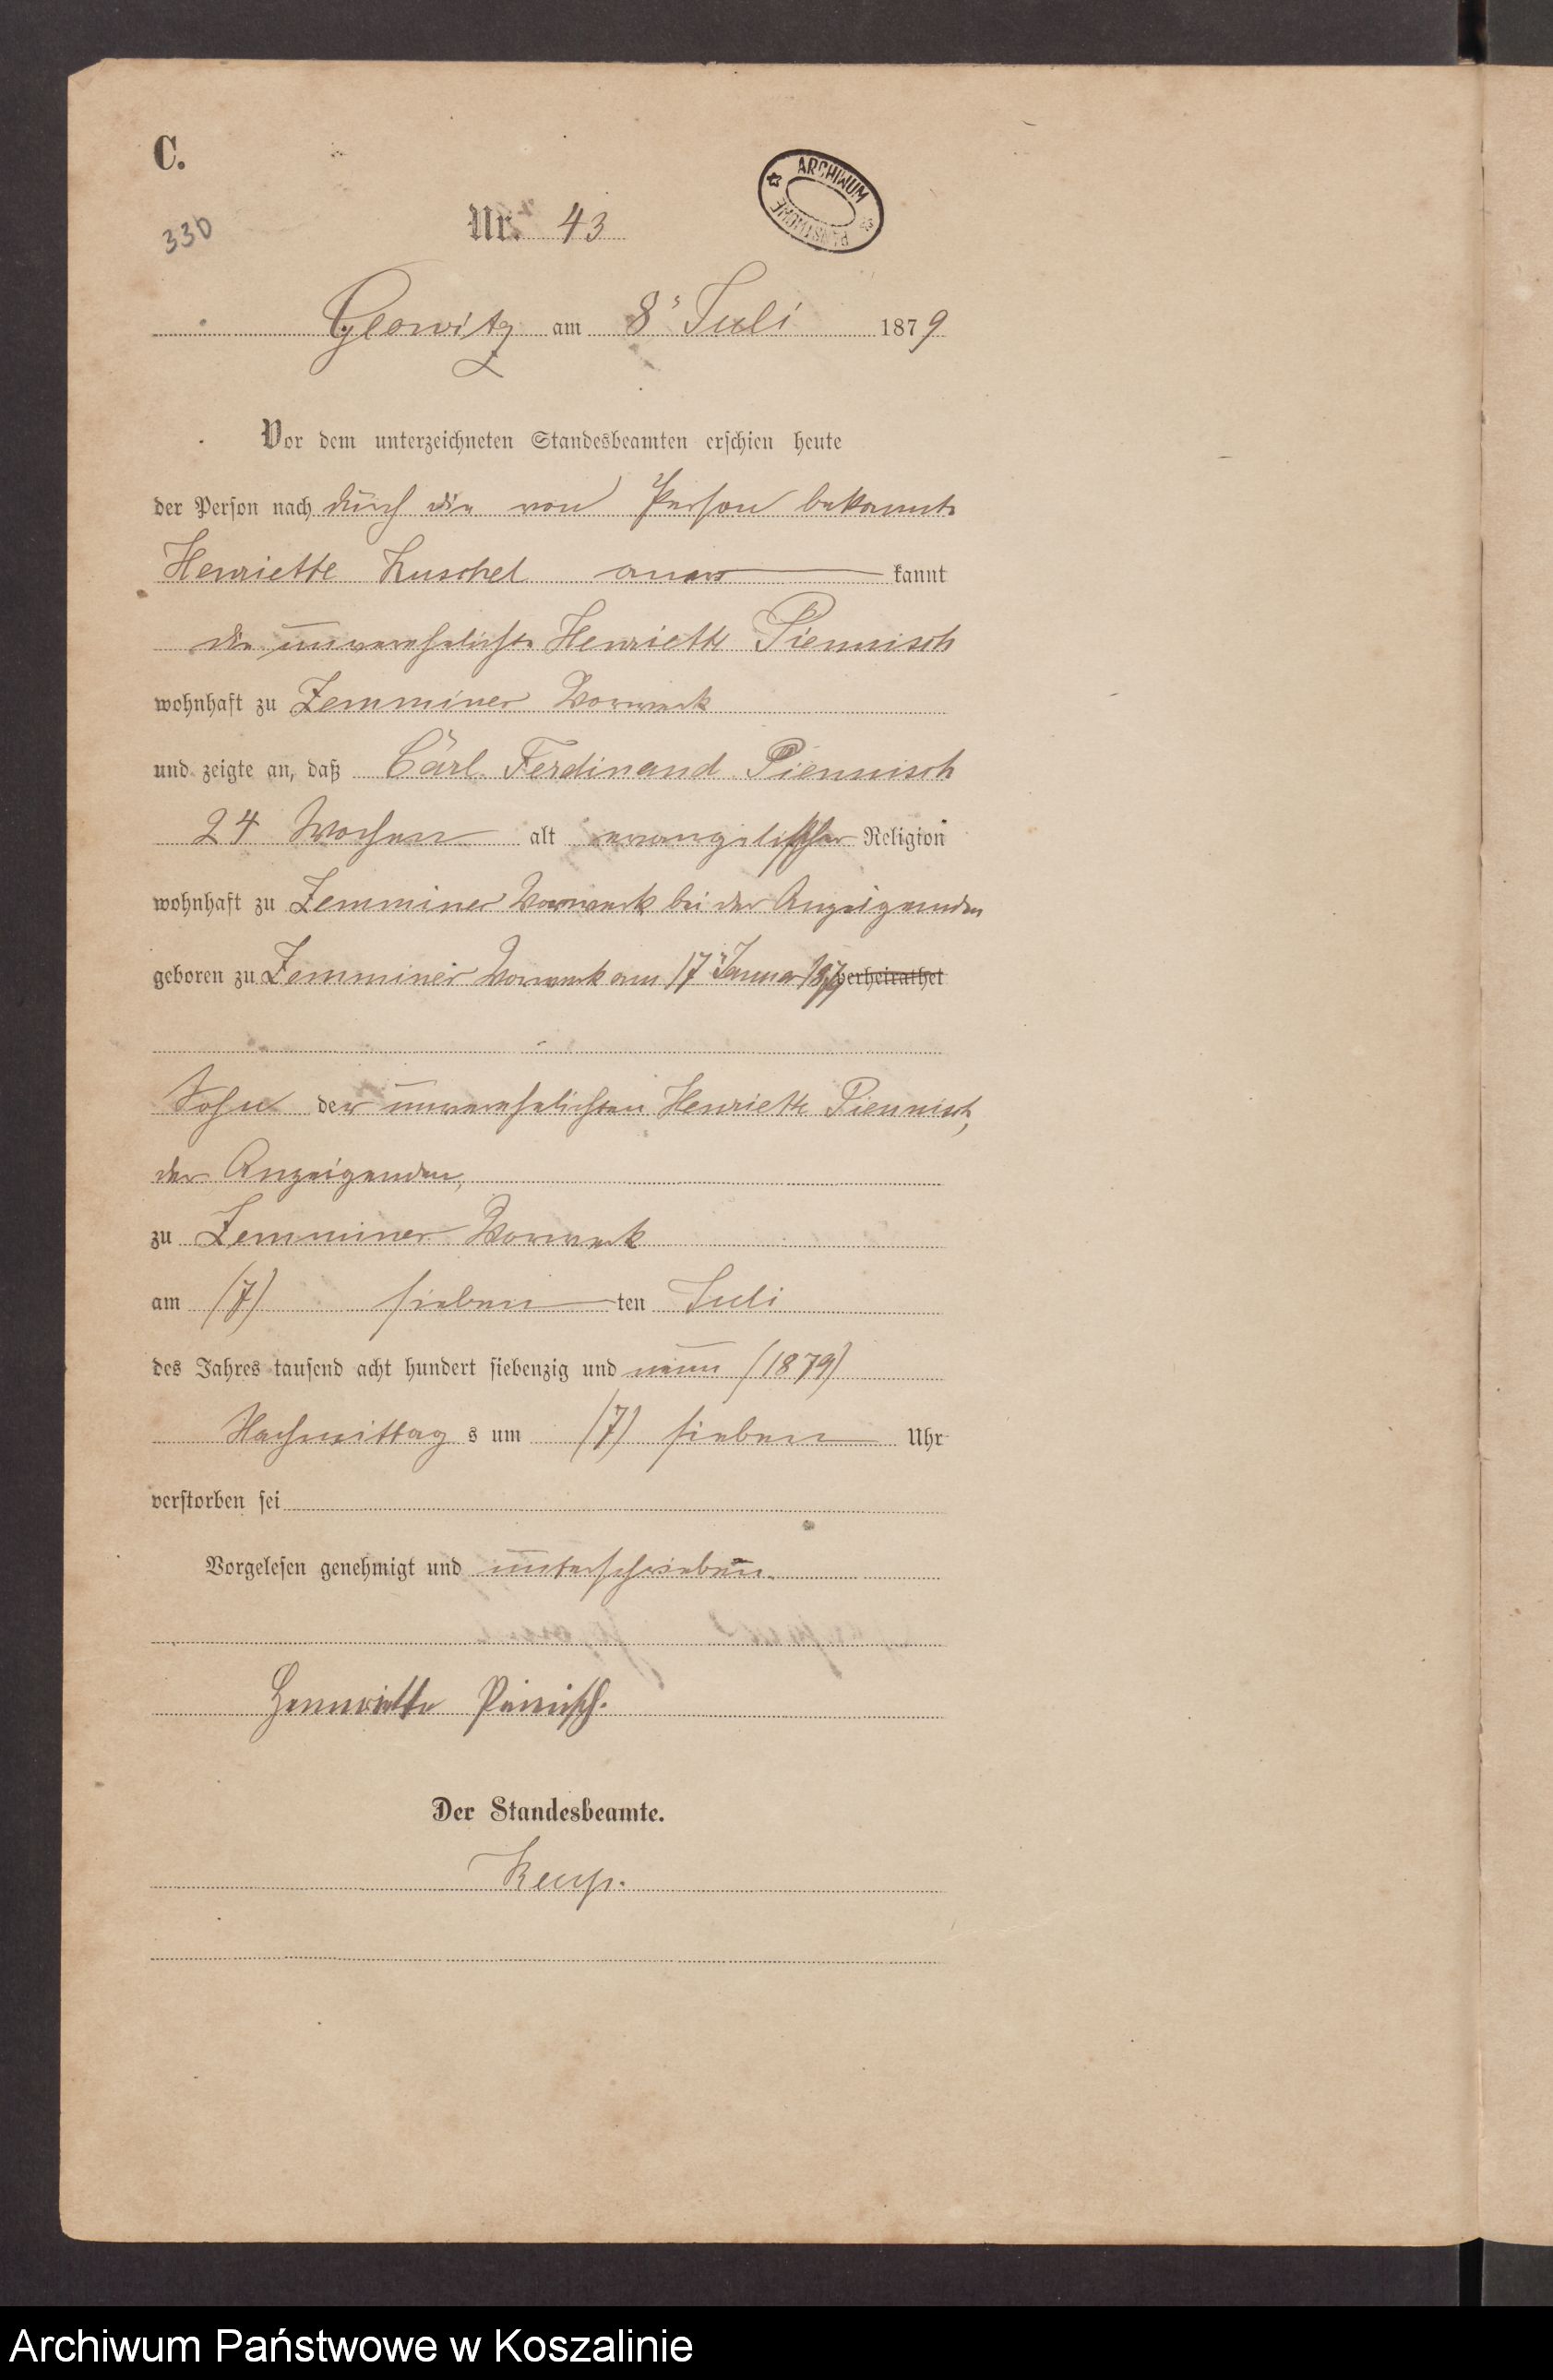 C.
ARCHIWUM PAŃSTWOWE
330
Nr. 43
Glowitz am 8' Juli 1879
Vor dem unterzeichneten Standesbeamten erschien heute
der Person nach durch die von Person bekannte
Henriette Kuschel aner kannt
die unverehelichte Henriette Piennisch
wohnhaft zu Zemminer Vorwerk
und zeigte an, daß Carl Ferdinand Piennisch
24 Wochen alt evangelischer Religion
wohnhaft zu Zemminer Vorwerk bei der Anzeigenden
geboren zu Zemminer Vorwerk am 17' Januar 1879 verheirathet
Sohn der unverehelichten Henriette Piennisch,
der Anzeigenden,
zu Zemminer Vorwerk
am (7) sieben ten Juli
des Jahres tausend acht hundert siebenzig und neun (1879)
Nachmittag s um (7) sieben Uhr
verstorben sei
Vorgelesen genehmigt und unterschrieben.
Hennriette
Der Standesbeamte.
Archiwum Państwowe w Koszalinie